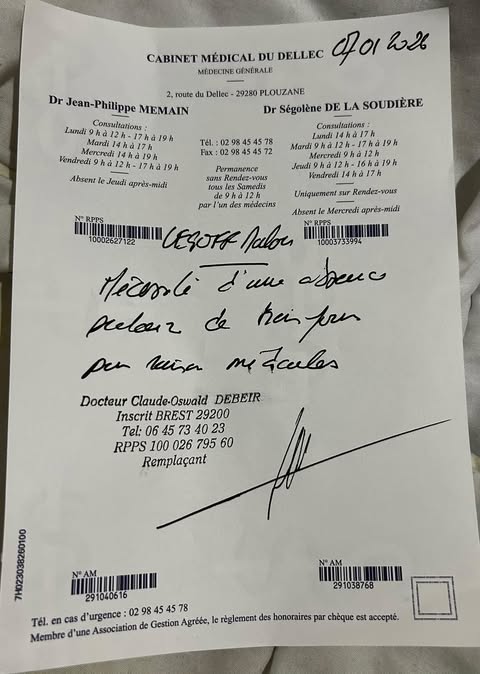 CABINET MÉDICAL DU DELLEC
07 01 2026
MÉDECINE GÉNÉRALE
2, route du Dellec - 29280 PLOUZANE
Dr Jean-Philippe MEMAIN
Consultations :
Lundi 9 h à 12 h - 17 h à 19 h
Mardi 14 h à 17 h
Mercredi 14 h à 19 h
Vendredi 9 h à 12 h - 17 h à 19 h
Absent le Jeudi après-midi
Tél. : 02 98 45 45 78
Fax : 02 98 45 45 72
Permanence
sans Rendez-vous
tous les Samedis
de 9 h à 12 h
par l'un des médecins
Dr Ségolène DE LA SOUDIÈRE
Consultations :
Lundi 14 h à 17 h
Mardi 9 h à 12 h - 17 h à 19 h
Mercredi 9 h à 12 h
Jeudi 9 h à 12 h - 16 h à 19 h
Vendredi 14 h à 17 h
Uniquement sur Rendez-vous
Absent le Mercredi après-midi
N° RPPS
10002627122
N° RPPS
10003733994
LEGOFF
Nécessité d'une absence
de trois jours
par raison médicales
Docteur Claude-Oswald DEBEIR
Inscrit BREST 29200
Tel: 06 45 73 40 23
RPPS 100 026 795 60
Remplaçant
7H023038260100
N° AM
291040616
N° AM
291038768
Tél. en cas d'urgence : 02 98 45 45 78
Membre d'une Association de Gestion Agréée, le règlement des honoraires par chèque est accepté.